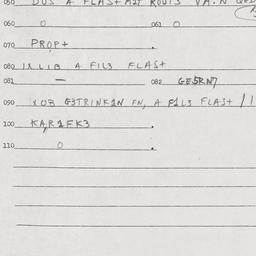 050 DOS A FLAST MIT ROUTS VA.N
060 O 061 O
070 PROP+
080 IX LIB A FILS FLAS+
081 — 082 GE5RN7
090 X OB G3TRINK1N FN, A F1LS FLAS+
100 KAR1FK3
110 O